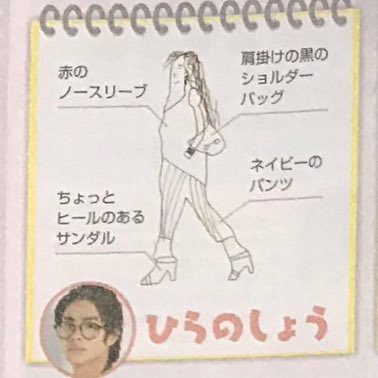 赤の
ノースリーブ
肩掛けの黒の
ショルダー
バッグ
ネイビーの
パンツ
ちょっと
ヒールのある
サンダル
ひらのしょう